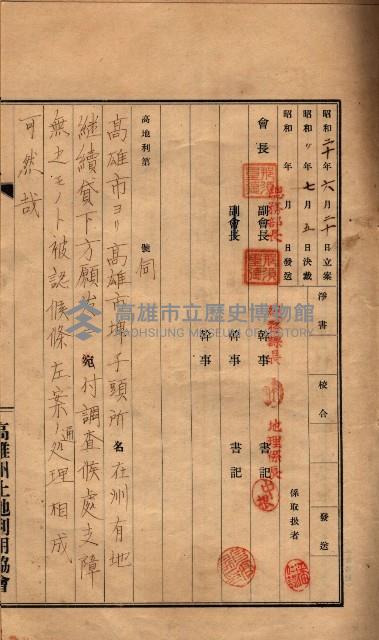 昭和二十年六月三十日立案
昭和〃年七月五日決裁
昭和　年　月　日發送
淨書
校合
發送
係取扱者
會長
總務部長
副會長
副會長
總務課長
幹事
幹事
幹事
地理係長
書記
書記
高地利第　　　號
伺
名
宛
高雄市ヨリ高雄市埤子頭所在州有地
継續貸下方願出付調査候處支障
無之モノト被認候條左案ノ通処理相成
可然哉
高雄州土地利用協會
高雄市立歷史博物館
KAOHSIUNG MUSEUM OF HISTORY